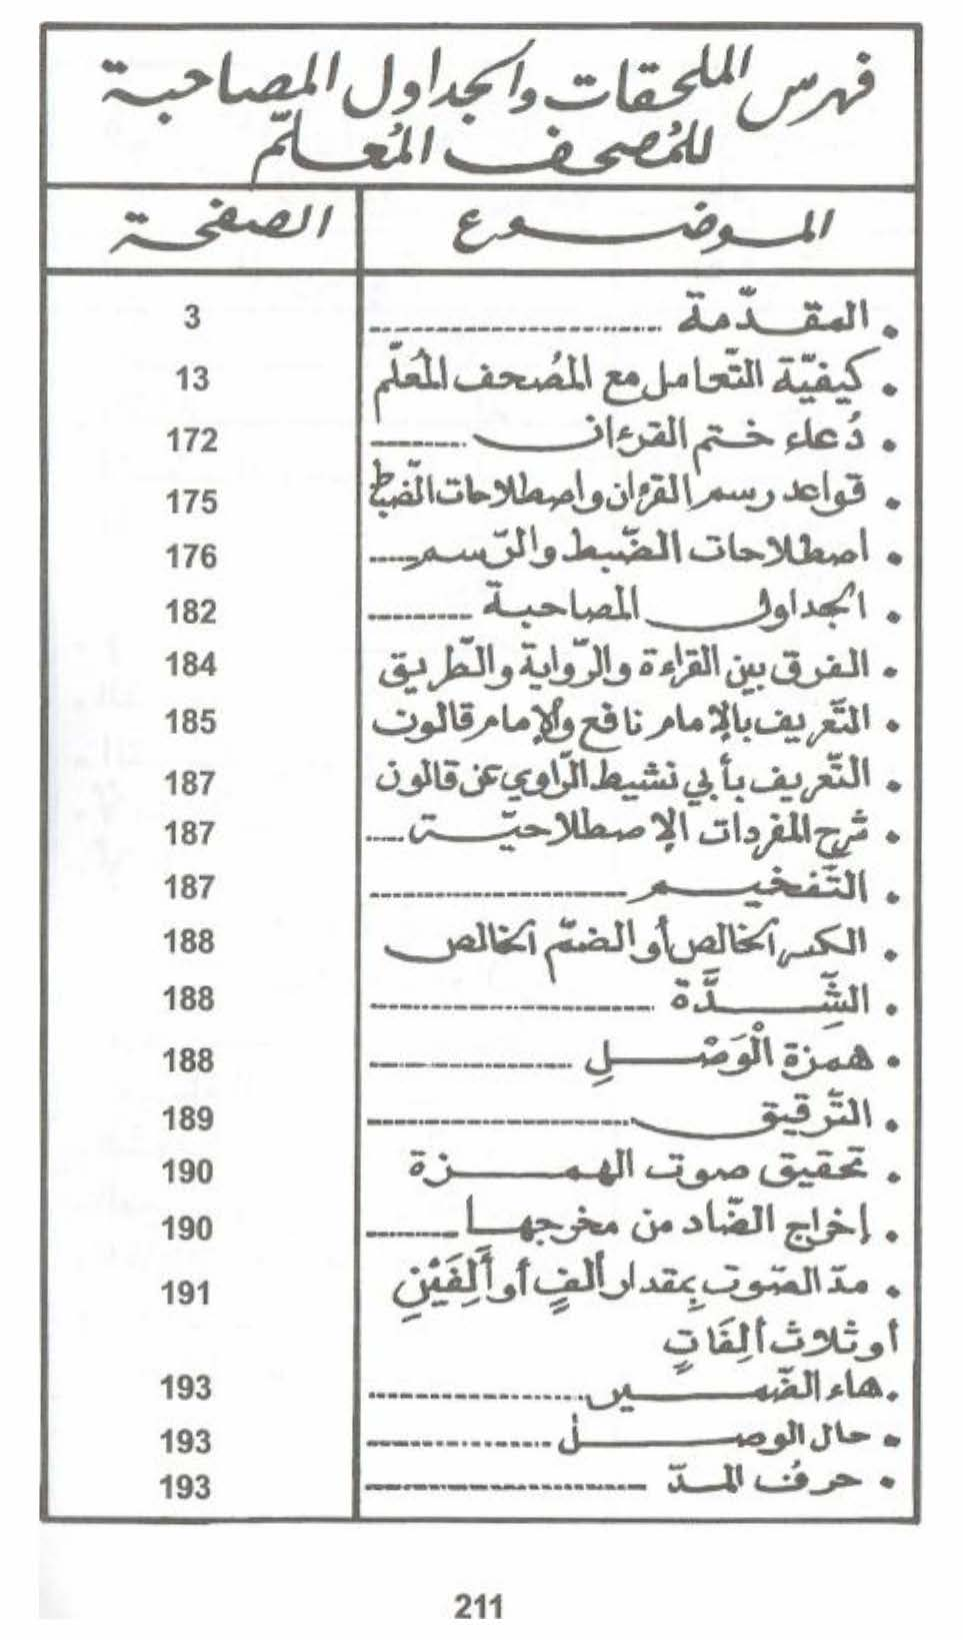 فهرس الملحقات والجداول المصاحبة
للمُصحف المُعلّم
الموضوع الصفحة
• المقدّمة ........................ 3
• كيفيّة التّعامل مع المُصحف المُعَلّم 13
• دُعاء ختم القرءان ......... 172
• قواعد رسم القرءان واصطلاحات الضّبط 175
• اصطلاحات الضّبط والرّسم..... 176
• الجداول المصاحبة ......... 182
• الفرق بين القراءة والرّواية والطّريق 184
• التّعريف بالإمام نافع والإمام قالون 185
• التّعريف بأبي نشيط الرّاوي عن قالون 187
• شرح المفردات الإصطلاحيّة..... 187
• التّفخيم ........................ 187
• الكسر الخالص أو الضمّ الخالص 188
• الشِّدَّة ........................ 188
• همزة الْوَصْلِ .................. 188
• التّرقيق ........................ 189
• تحقيق صوت الهمزة 190
• إخراج الضّاد من مخرجها ......... 190
• مدّ الصّوت بِمقدار ألفٍ أو أَلِفَيْنِ 191
أو ثلاث ألِفَاتٍ
• هاء الضّمير .................. 193
• حال الوصل .................. 193
• حرفُ المدّ ........................ 193
211